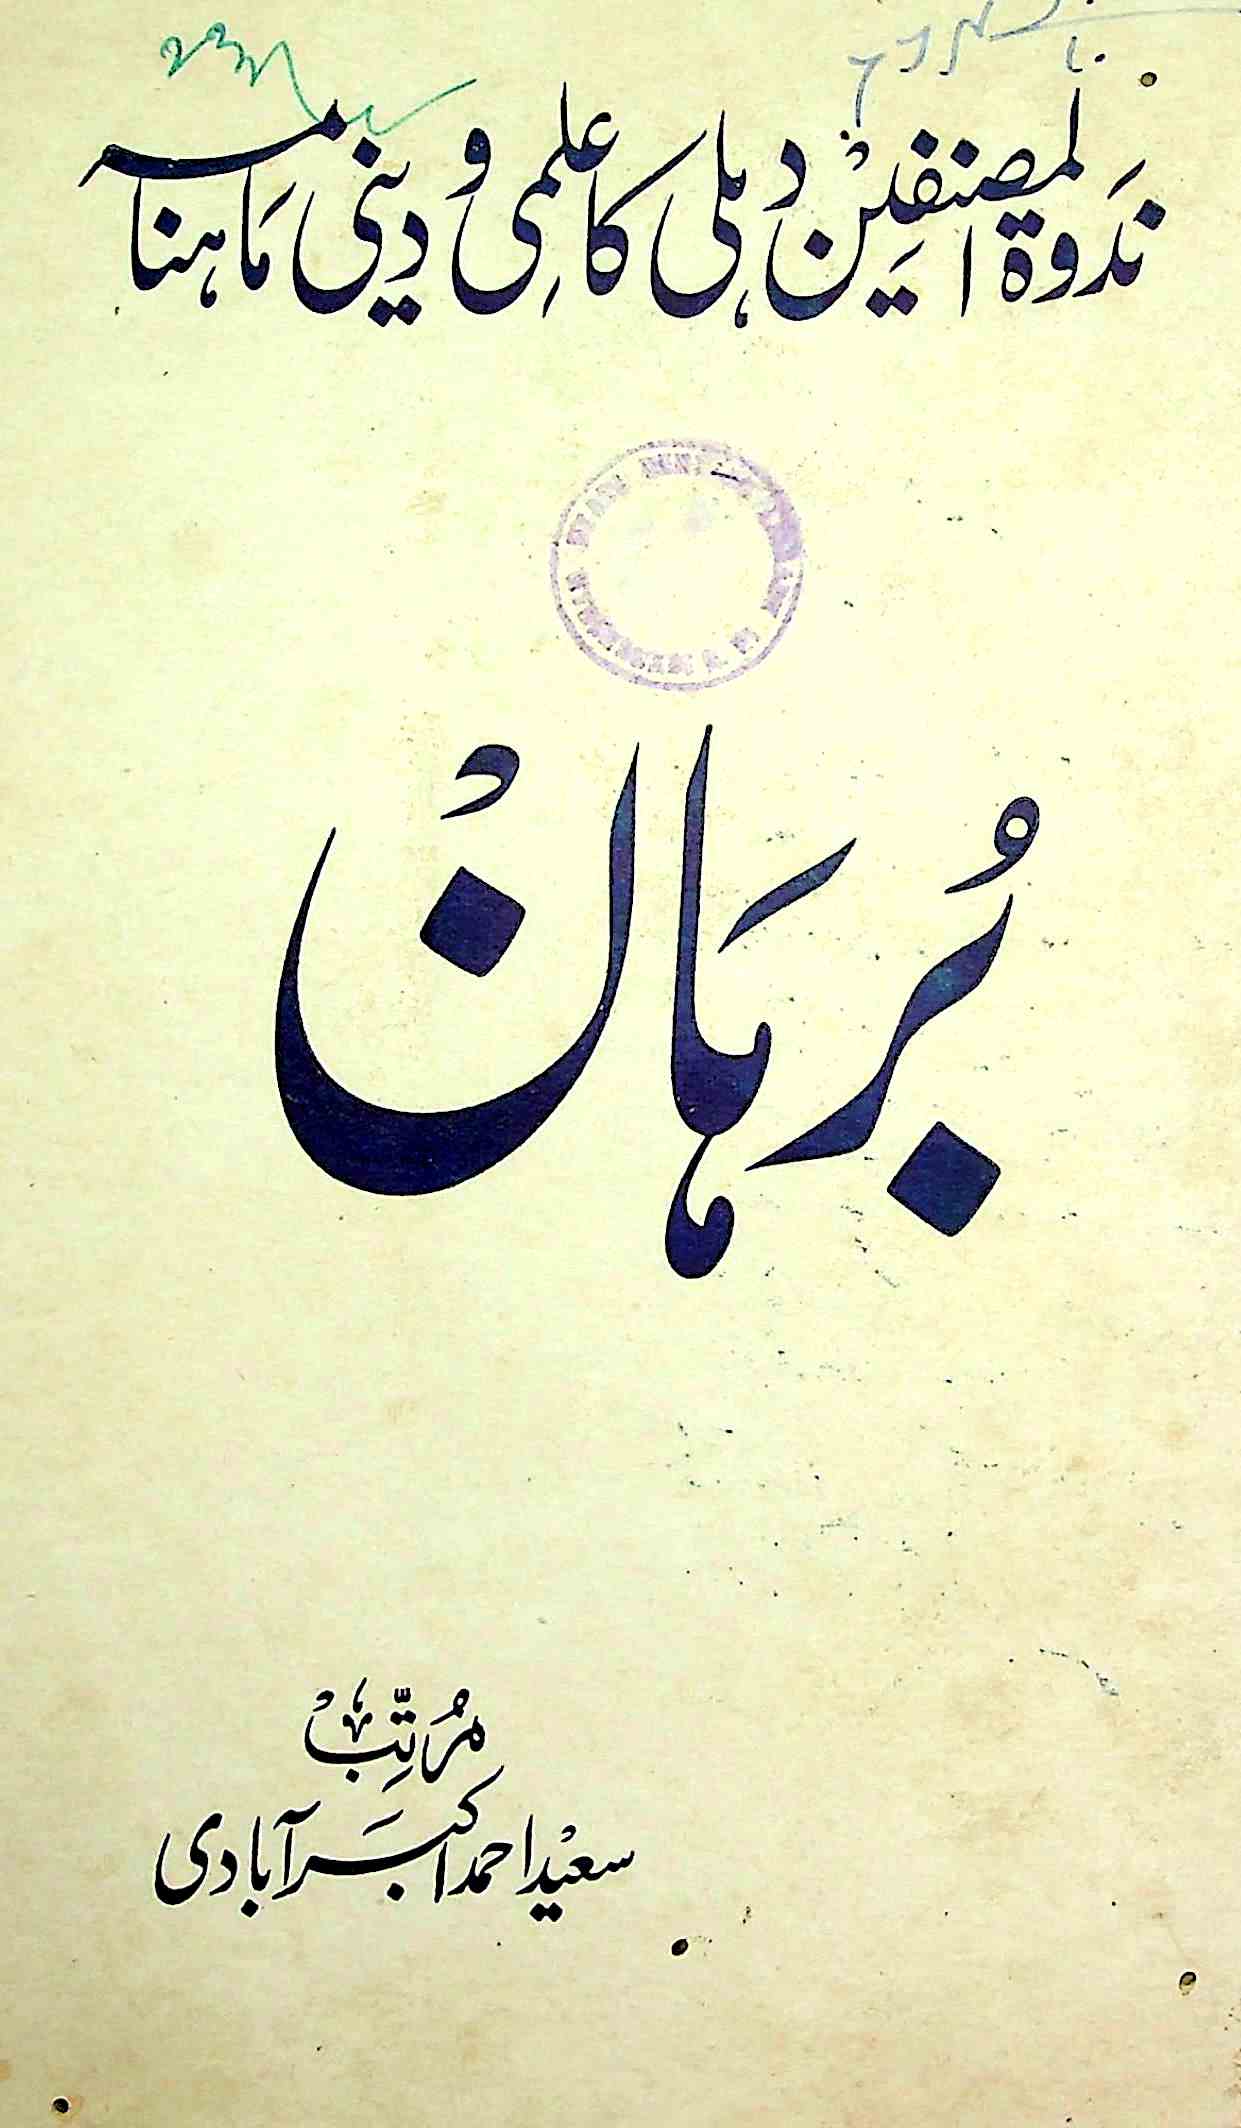 ندوۃ المصنفین دہلی کا علمی و دینی ماہنامہ
بُرہانْ
مُرتِّبْ
سعید احمد اکبر آبادی